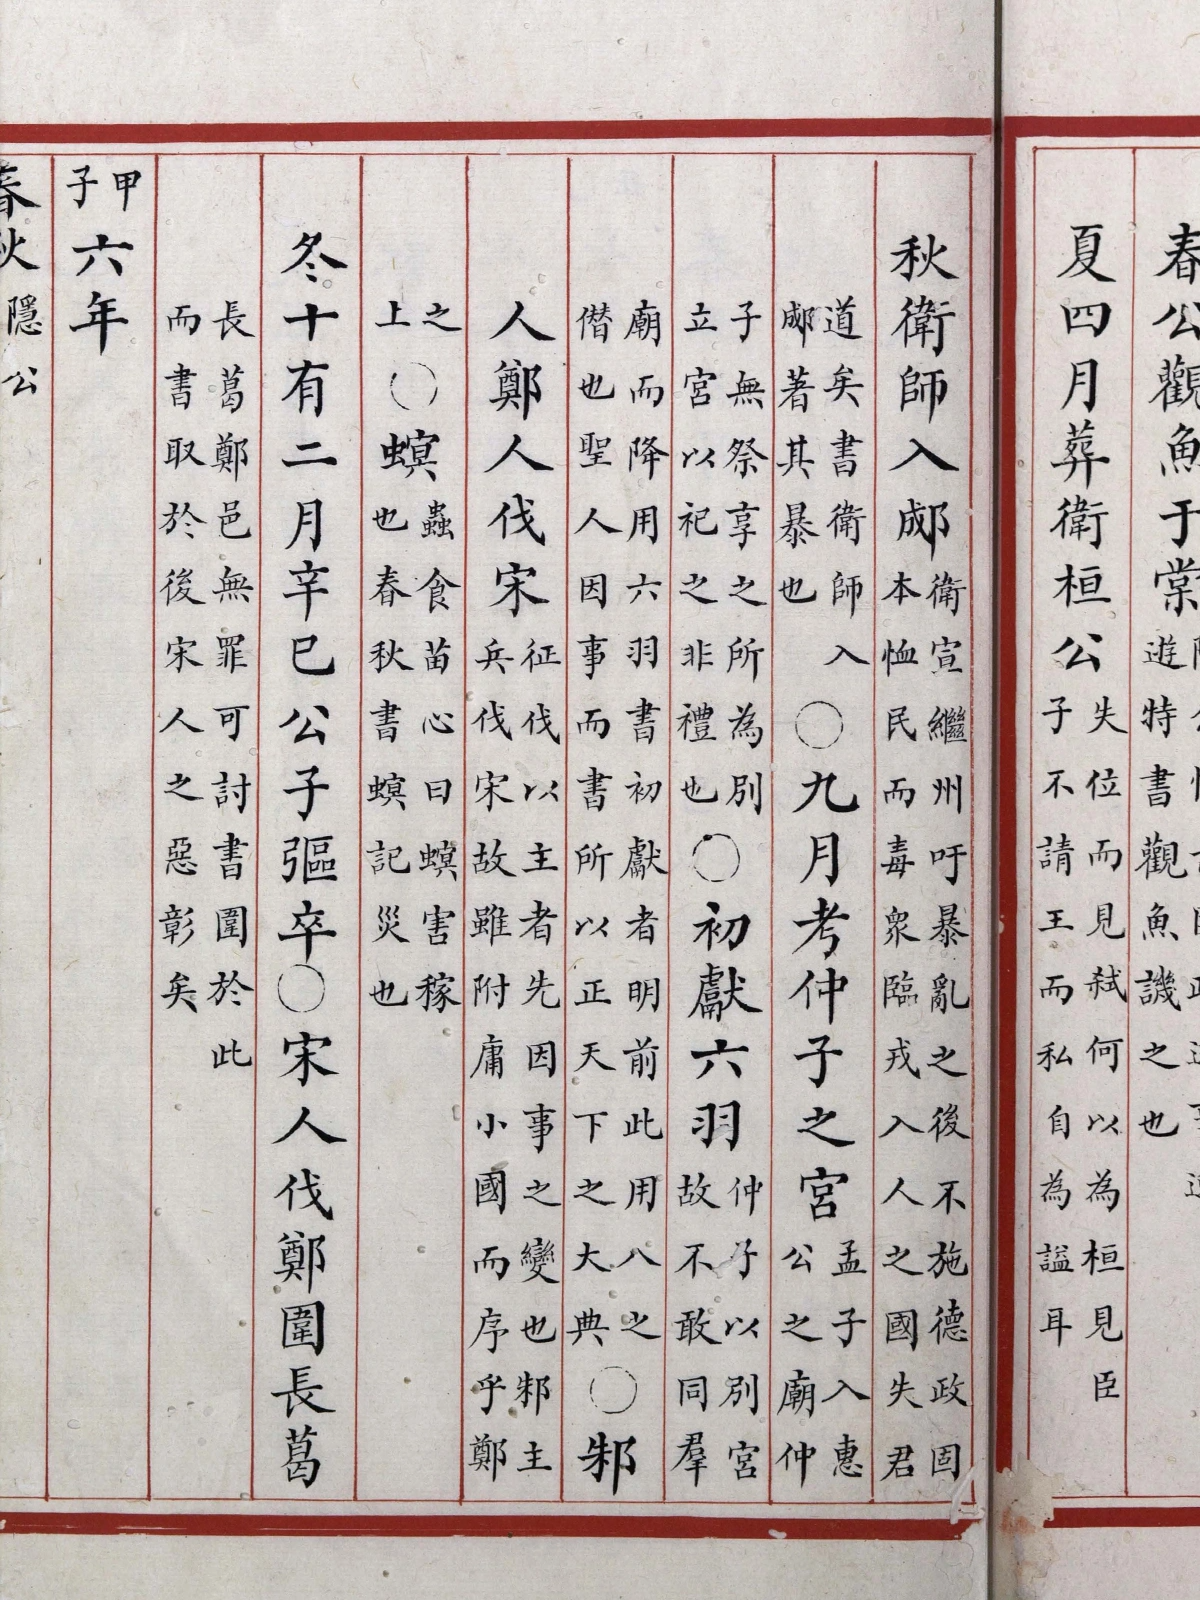 春公觀魚于棠
遊特書觀魚譏之也
夏四月葬衛桓公
失位而見弑何以為桓見臣
子不請王而私自為謚耳
秋衛師入郕
衛宣繼州吁暴亂之後不施德政固
本恤民而毒衆臨戎入人之國失君
道矣書衛師入
郕著其暴也
○九月考仲子之宮
孟子入惠
公之廟仲
子無祭享之所為別
立宮以祀之非禮也
○初獻六羽
仲子以別宮
故不敢同羣
廟而降用六羽書初獻者明前此用八之
僭也聖人因事而書所以正天下之大典
○邾
人鄭人伐宋
征伐以主者先因事之變也邾主
兵伐宋故雖附庸小國而序乎鄭
之
上
○螟
蟲食苗心曰螟害稼
也春秋書螟記災也
冬十有二月辛巳公子彄卒○宋人伐鄭圍長葛
長葛鄭邑無罪可討書圍於此
而書取於後宋人之惡彰矣
甲子
六年
春秋
隱公